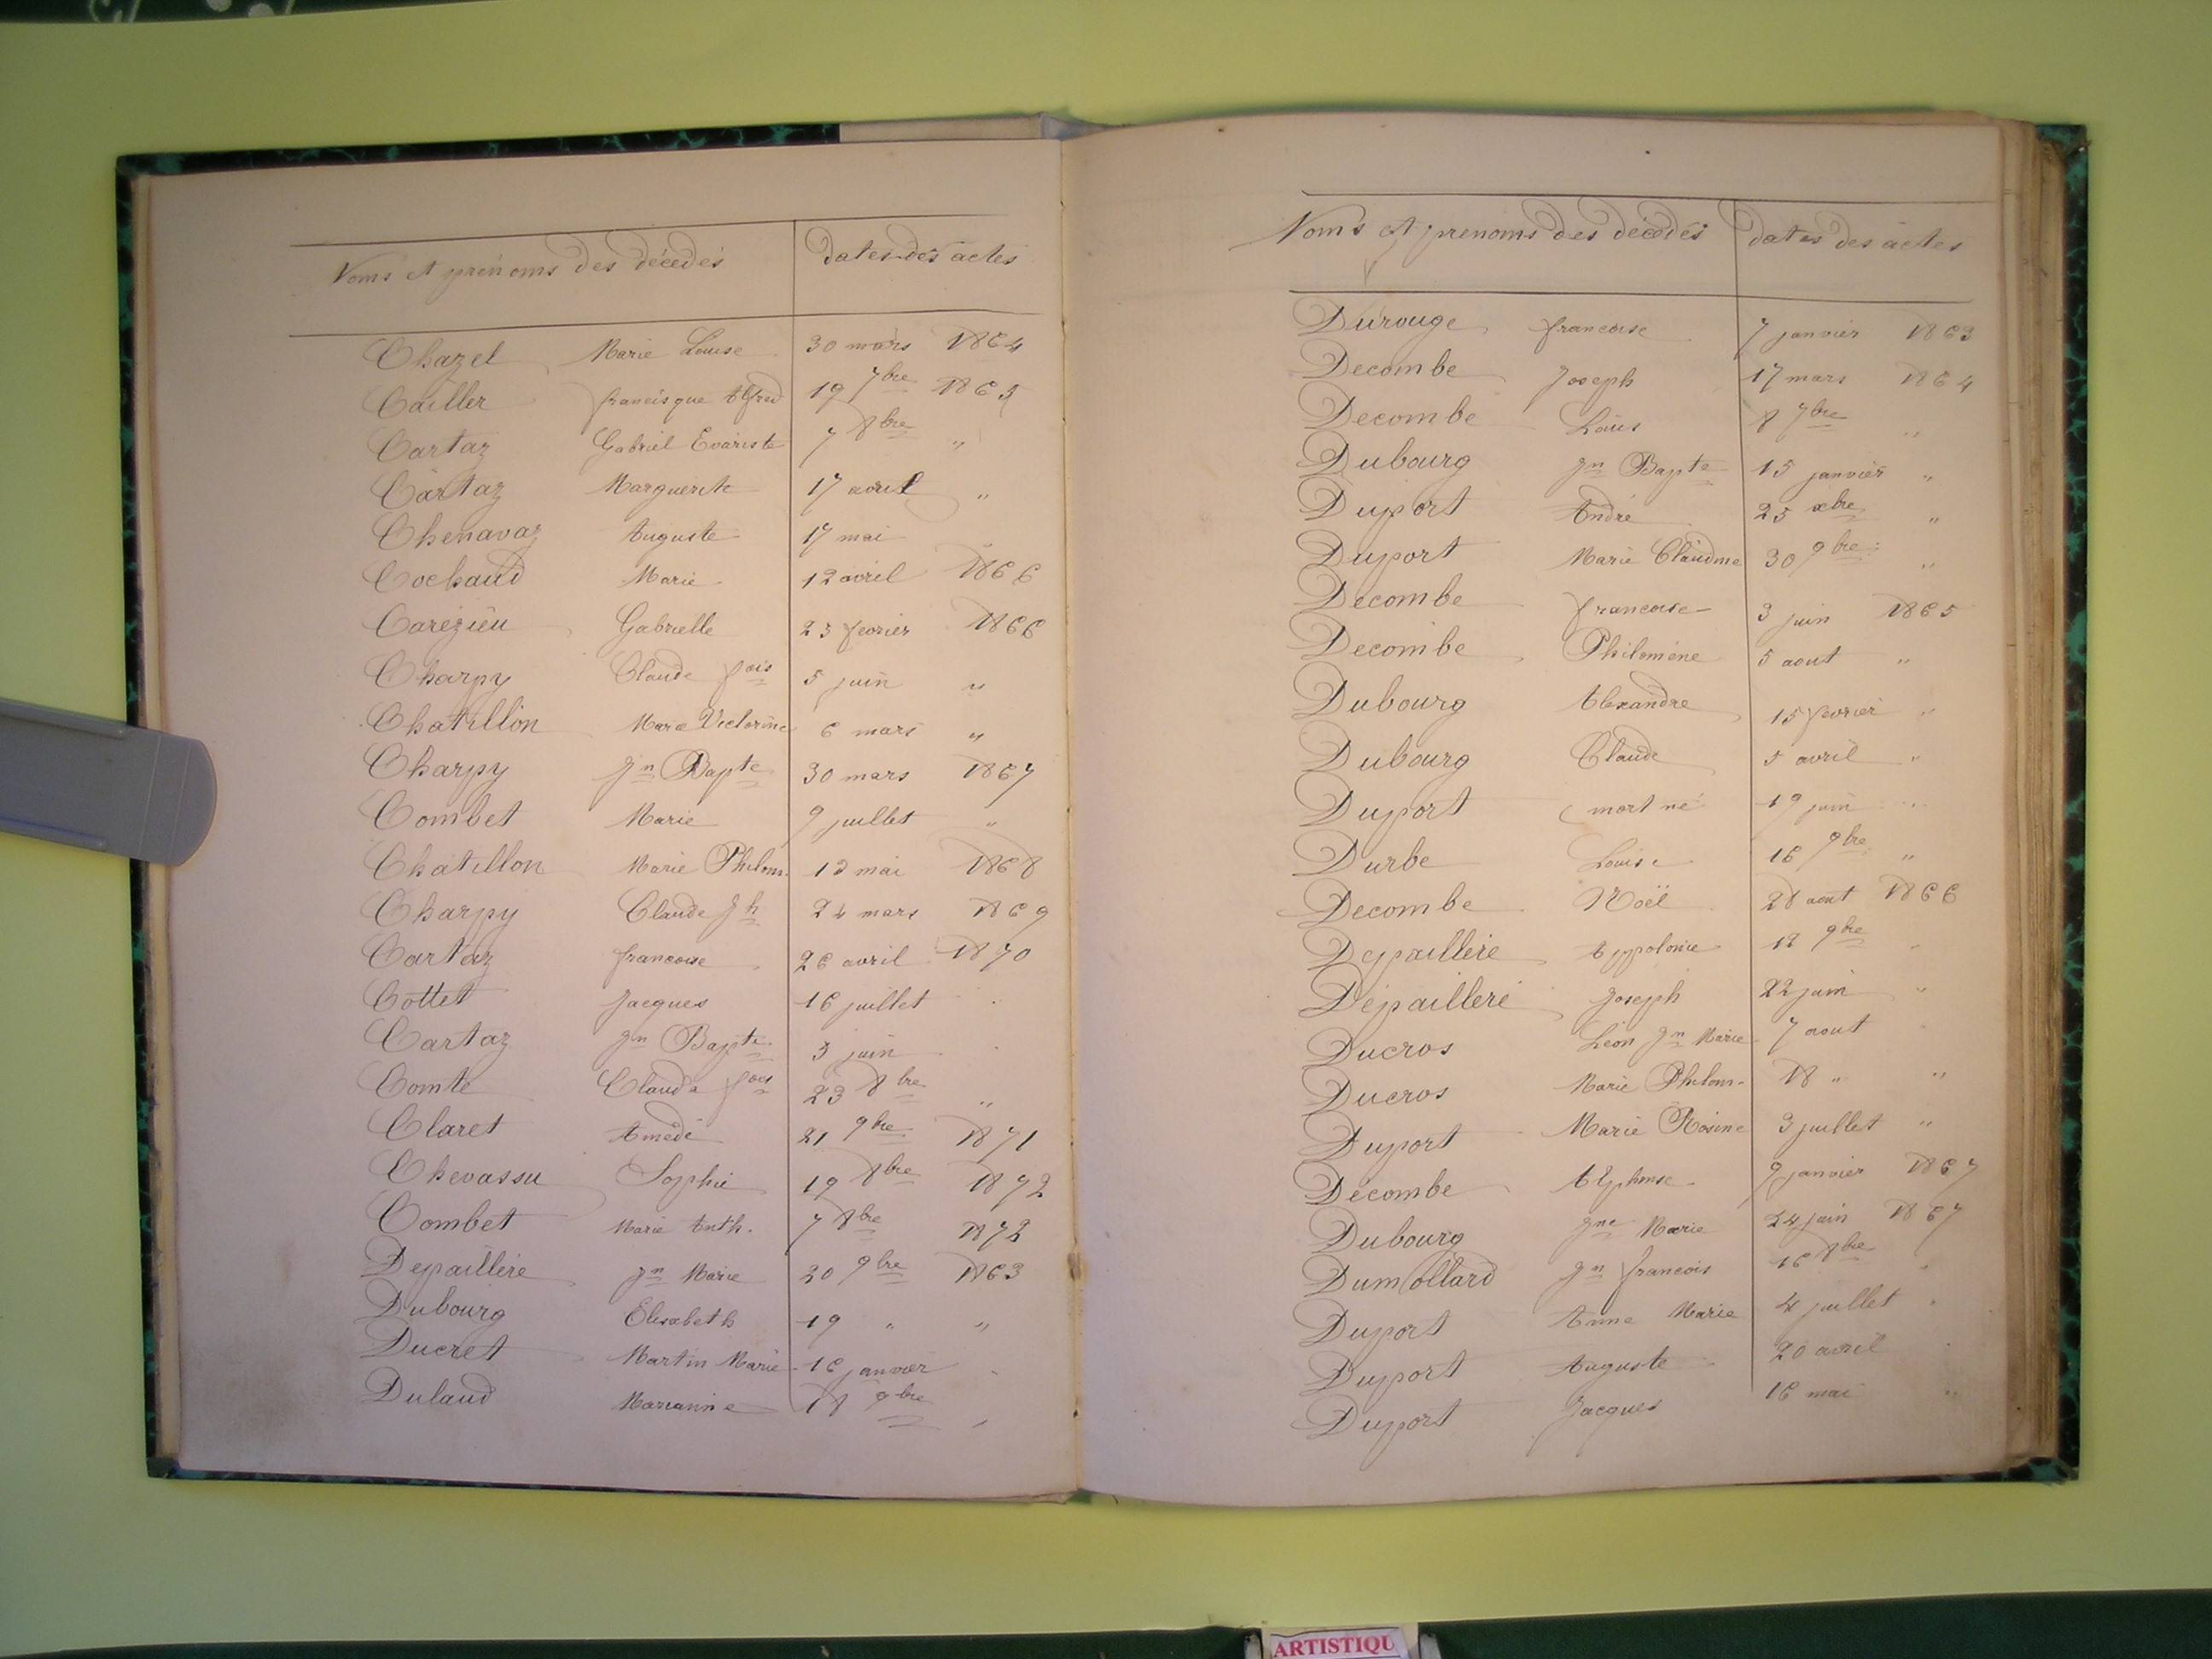 Noms et prénoms des décédés dates des actes
Chazel Marie Louise 30 mars 1864
Cailler francisque Alfred 19 7bre 1865
Cartaz Gabriel Evariste 7 8bre "
Cartaz Marguerite 17 avril "
Chenavaz Auguste 17 mai
Cochaud Marie 12 avril 1866
Carézieu Gabrielle 23 fevrier 1866
Charpy Claude fois 5 juin "
Chatillon Marie Victorine 6 mars "
Charpy Jn Bapte 30 mars 1867
Combet Marie 9 juillet "
Chatillon Marie Philom. 13 mai 1868
Charpy Claude Jh 24 mars 1869
Cartaz francoise 26 avril 1870
Cottet Jacques 16 juillet "
Cartaz Jn Bapte 3 juin "
Comte Claude fois 23 8bre "
Claret Amédé 21 9bre 1871
Chevassu Sophie 19 8bre 1872
Combet Marie Anth. 7 8bre 1872
Depaillère Jn Marie 20 9bre 1863
Dubourg Elisabeth 19 " "
Ducret Martin Marie 16 janvier "
Dulaud Marianne 18 9bre "
Noms et prenoms des décédés dates des actes
Durouge francoise 7 janvier 1863
Decombe Joseph 17 mars 1864
Decombe Louis 8 7bre "
Dubourg Jn Bapte 15 janvier "
Duport André 25 xbre "
Duport Marie Claudine 30 9bre "
Decombe francoise 3 juin 1865
Decombe Philomène 5 aout "
Dubourg Alexandre 15 fevrier "
Dubourg Claude 5 avril "
Duport mort né 19 juin "
Durbe Louise 16 9bre "
Decombe Noël 28 aout 1866
Depaillère Appolonie 12 9bre "
Dépailleré Joseph 22 juin "
Ducros Léon Jn Marie 7 aout "
Ducros Marie Philom. 18 " "
Duport Marie Rosine 3 juillet "
Decombe Alphonse 9 janvier 1867
Dubourg Jne Marie 24 juin 1867
Dumollard Jn francois 16 8bre "
Duport Anne Marie 4 juillet "
Duport Auguste 20 avril "
Duport Jacques 16 mai "
ARTISTIQU